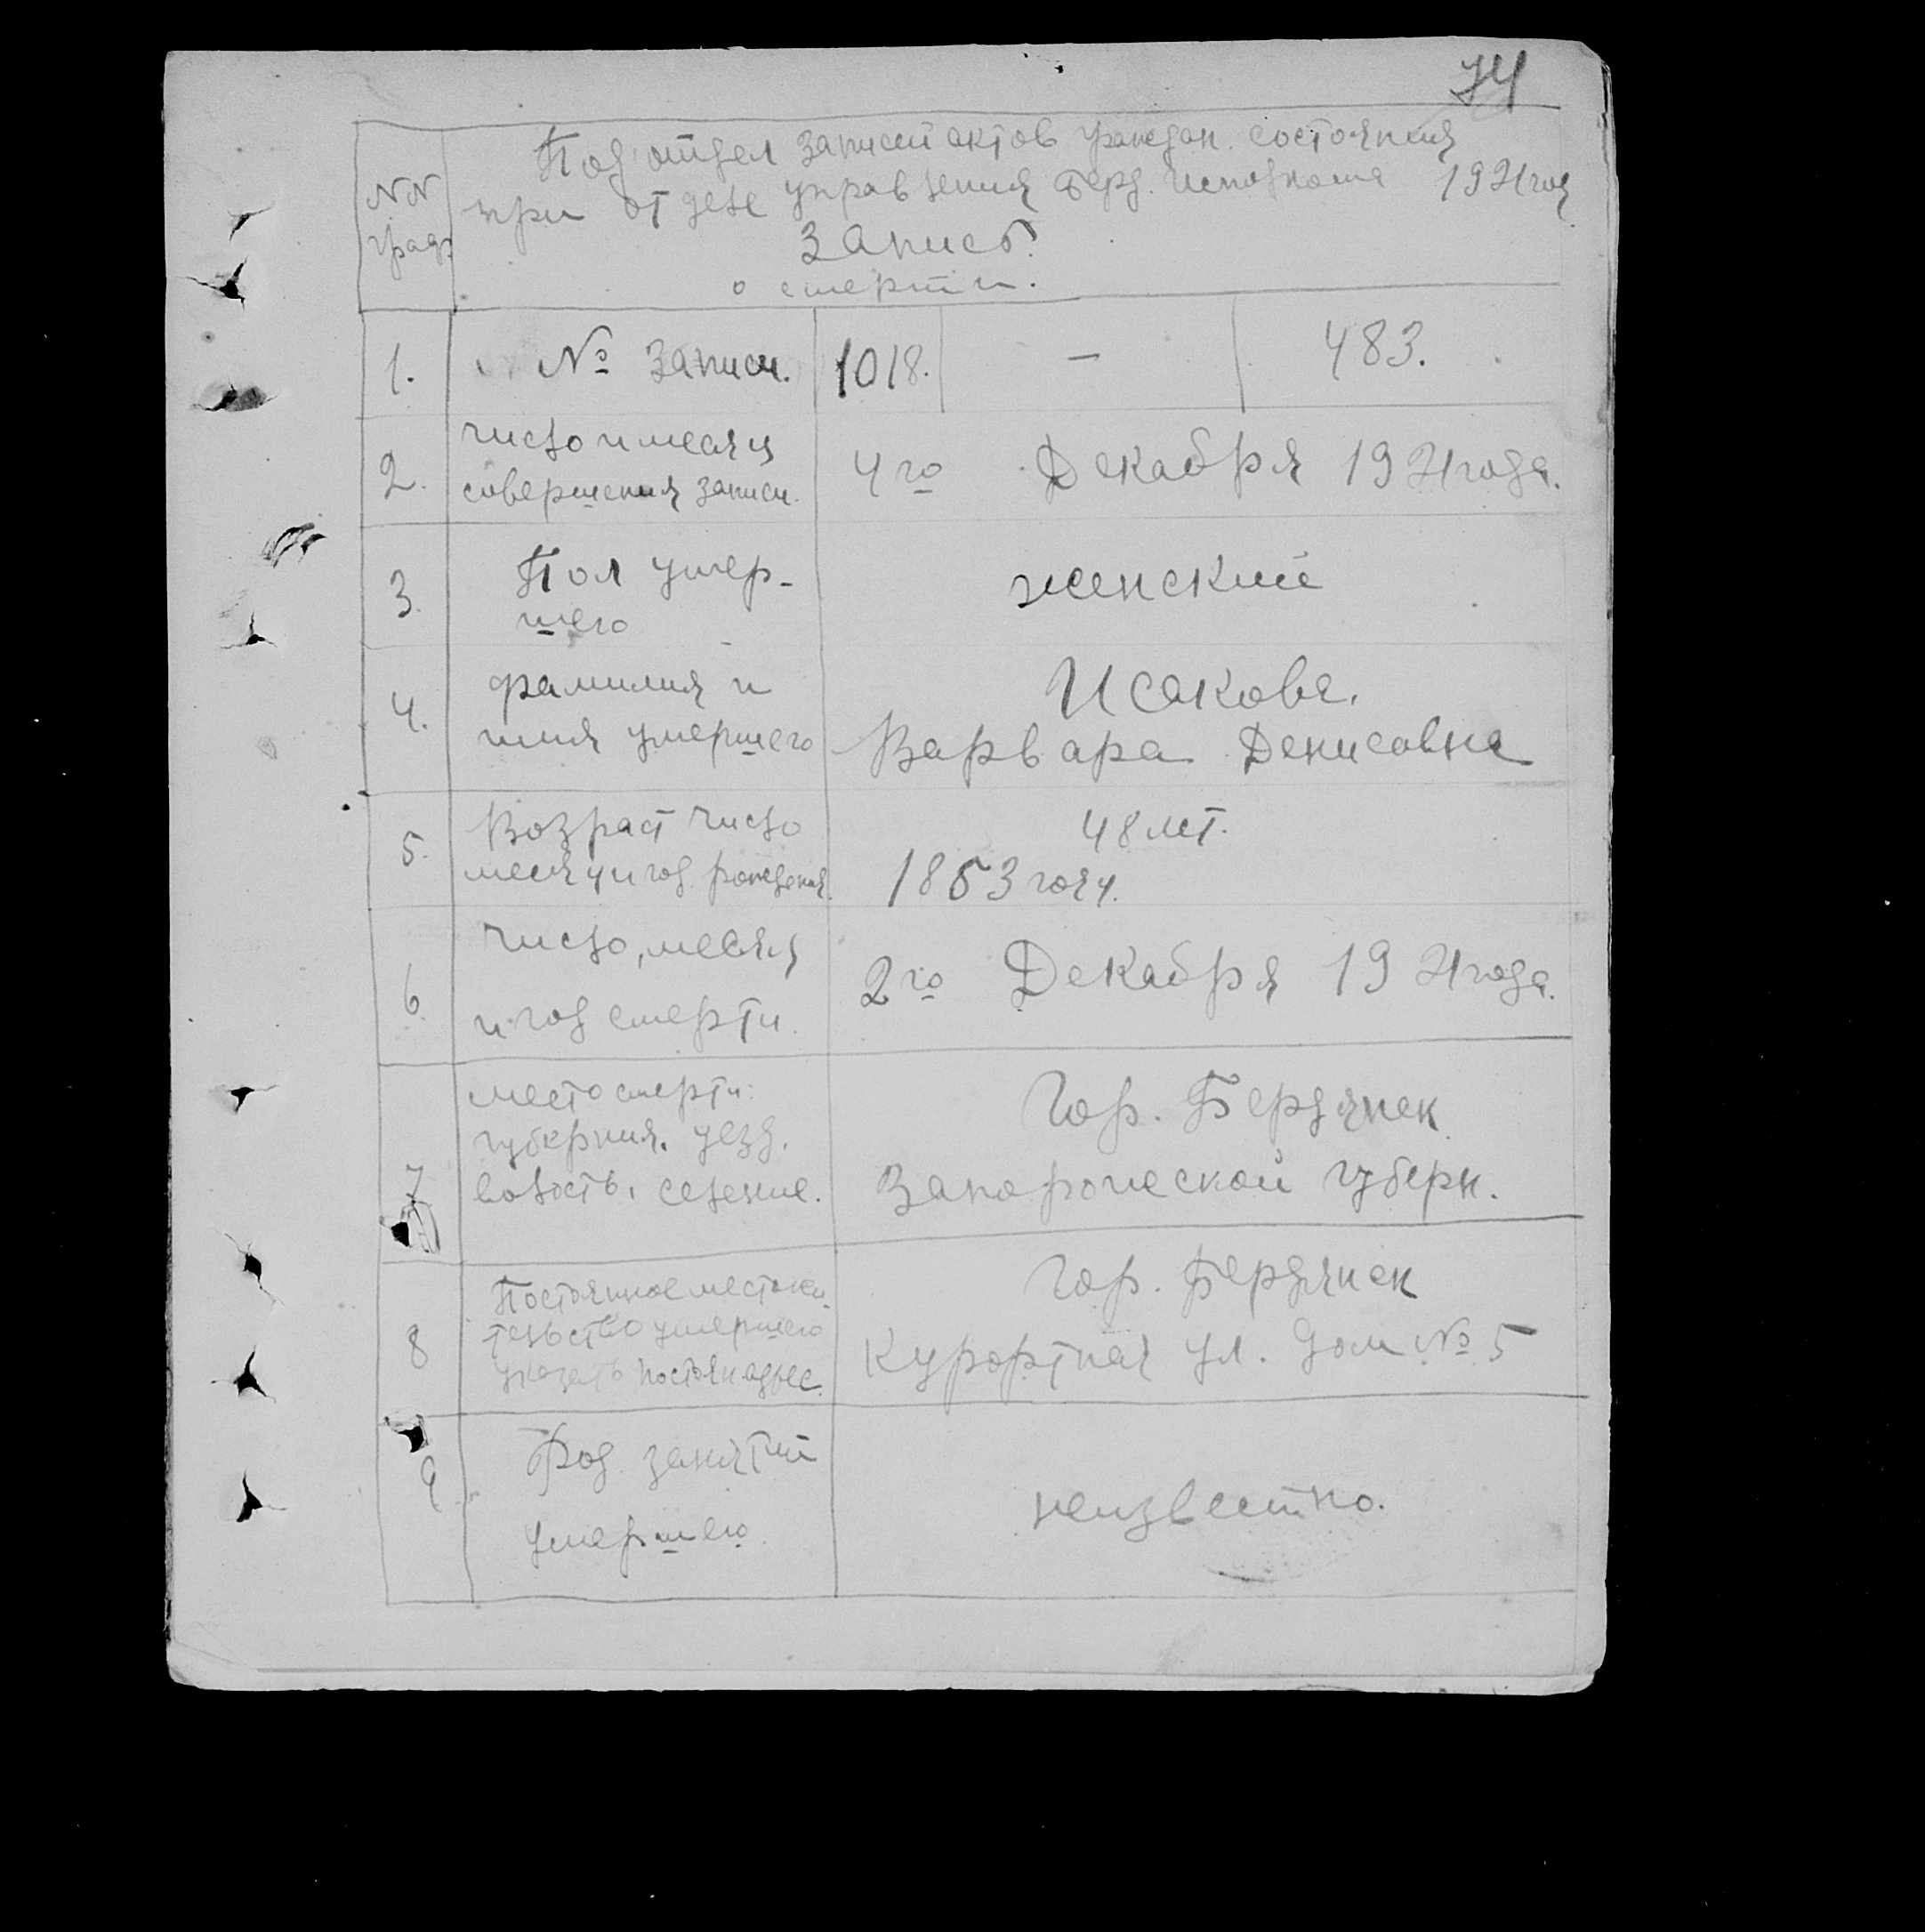 74
Под'отдел записей актов граждан. состояния
при отделе управления Берд. исполкома 1921 год
№№
граф
Запись
о смерти.
1. № записи. 1018. — 483.
2. число и месяц
совершения записи. 4го Декабря 1921 года.
3. Пол умер-
шего
женский
4. фамилия и
имя умершего
Исакова,
Варвара Денисовна
5. Возраст число
месяц и год рождения
48 лет.
1853 году.
6. число, месяц
и год смерти.
2го Декабря 1921 года.
7 место смерти:
губерния, уезд,
волость, селение.
Гор. Бердянск
Запорожской губерн.
8 Постоянное местожи
тельство умершего
указать постоян адрес.
Гор. Бердянск
Курортная ул. дом № 5
9 Род занятий
умершего
неизвестно.